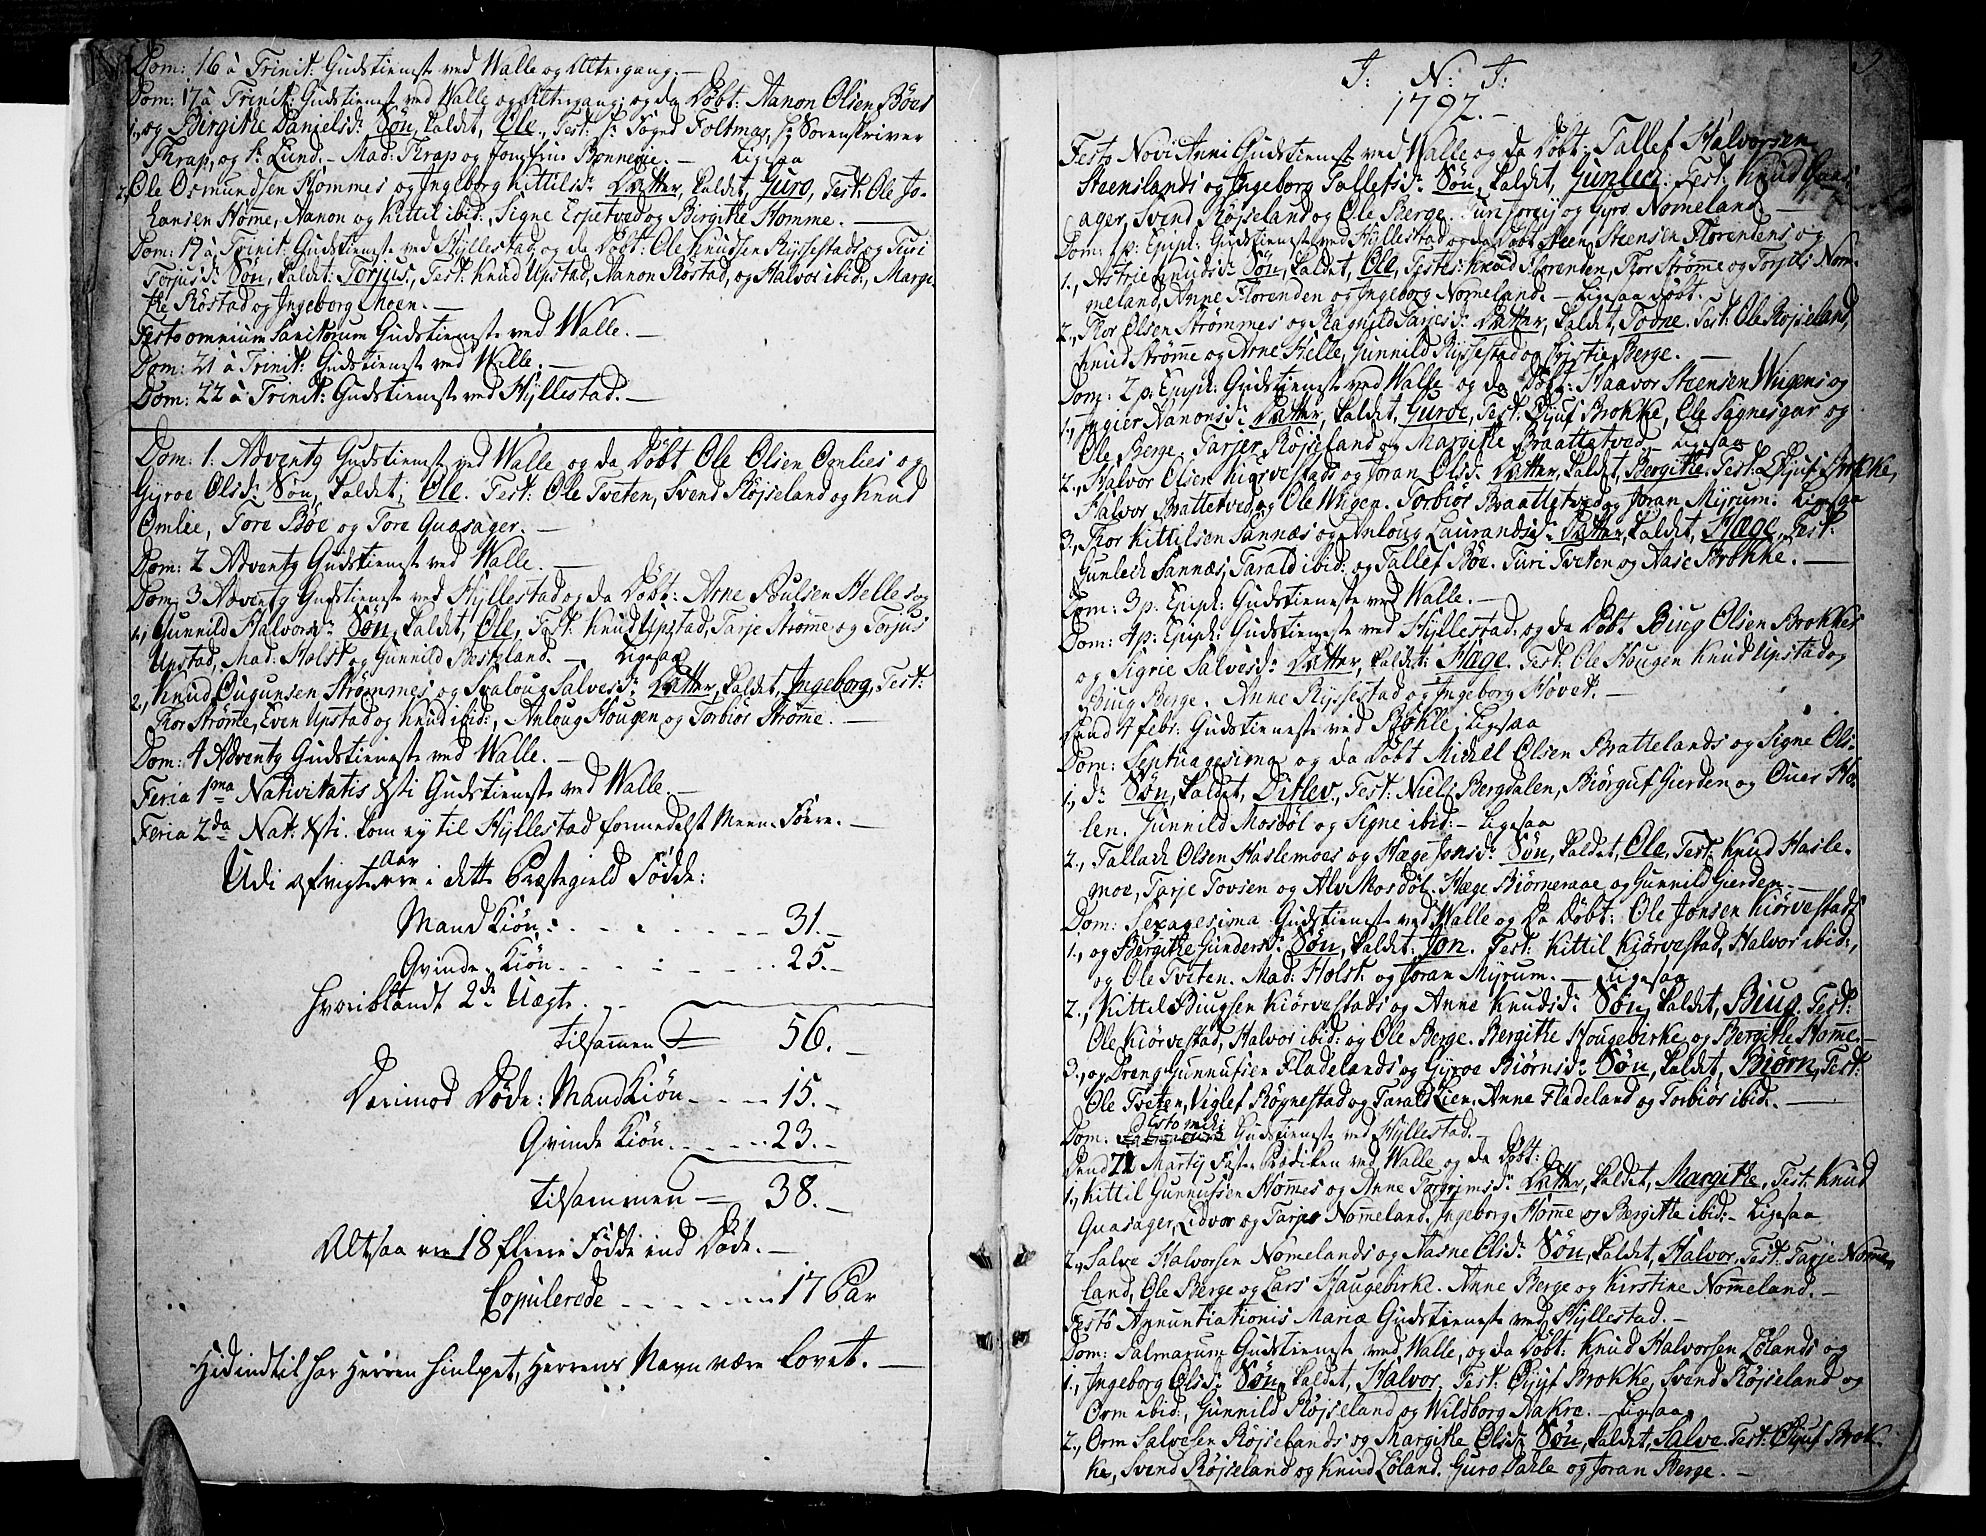 Dom: 16 à Trinit: Gudstieneste ved Walle og Altergang. —
Dom: 17 à Trinit: Gudstieneste ved Walle og Altergang, og da Döbt: Aanon Olsen Böes
1., og Bergithe Danielsd: Sön, kaldet, Ole, Test: Hr Foged Foltmar, Hr Sorenskriver
Thrap, og Hr Lund. — Mad: Thrap og Jomfrue Bonnevie. — Ligesaa
2, Ole Osmundsen Hommes og Ingeborg Kittilsdr Datter, kaldet, Guro, Test: Ole Jo-
hansen Homme, Aanon og Kittil ibid:, Signe Espetved og Birgithe Homme. —
Dom: 19 à Trinit: Gudstieneste ved Hyllestad, og da Döbt: Ole Knudsen Ryssestads og Turi
Torjusdr Sön, kaldet: Torjus, Test: Knud Upstad, Aanon Rostad, og Halvor ibid:, Margi-
the Röstad og Ingeborg Moen. —
Festo omnium Sanctorum Gudstieneste ved Walle. —
Dom: 21 à Trinit: Gudstieneste ved Walle. —
Dom: 22 à Trinit: Gudstieneste ved Hyllestad. —
Dom: 1. Adventg Gudstieneste ved Walle og da Döbt Ole Olsen Omlies og
Gyroe Olsdr Sön, kaldet, Ole. Test: Ole Tveten, Svend Röjseland og Knud
Omlie, Tore Böe og Tore Quasager. —
Dom: 2 Adventg Gudstieneste ved Walle. —
Dom: 3 Adventg Gudstieneste ved Hyllestad og da Döbt: Arne Poulsen Helles og
1., Gunnild Halvorsdr Sön, kaldet, Ole, Test: Knud Upstad, Tarje Strömme og Torjus
Upstad, Mad: Holst og Gunnild Besteland. — Ligesaa
2., Knud Ougunsen Strömmes og Svaloug Salvesdr Datter, kaldet, Ingeborg, Test:
Thor Ströme, Even Upstad og Knud ibid:, Anloug Hougen og Torbiör Strömme. —
Dom: 4 Adventg Gudstieneste ved Walle. —
Feria 1ma Nativitatis Xsti Gudstieneste ved Walle. —
Feria 2da Nat: Xsti. kom ey til Hyllestad formedelst Meene Föere. —
Udi afvigte Aar ere i dette Præstegield Födde:
Mand Kiön: 31. —
Qvinde Kiön 25. —
hvoriblandt 2de Uægte. —
tilsammen 56. —
Derimod Döde: Mand Kiön 15. —
Qvinde Kiön 23. —
tilsammen 38. —
Altsaa ere 18 flere Födde end Döde. —
Copulerede 17 Par
Hidindtil har Herren hiulpet, Herrens Navn være Lovet. —
J: N: J:
1792. —
Festo Novi Anni Gudstieneste ved Walle og da Döbt: Tallef Halvorsen
Steenslands og Ingeborg Tallefsdr Sön, kaldet, Gunlech: Test: Knud Quas-
ager, Svend Röjseland og Ole Berge. Turi og Gyro Nomeland —
Dom: 1 p: Epiph: Gudstieneste ved Hyllestad og da Döbt Steen Steensen Florentens og
1., Astrie Knudsdr Sön, kaldet, Ole, Testes: Knud Florenden, Thor Strömme og Torjus Nom-
meland, Anne Florenden og Ingeborg Nomeland. — Ligesaa Döbt.
2., Thor Olsen Strömmes og Ragnild Tarjesdr Datter, kaldet, Todne. Test: Ole Röjseland,
Knud Strömme og Arne Helle, Gunnild Ryssestad og Kirstie Berge. —
Dom: 2 p: Epiph: Gudstieneste ved Walle og da Döbt: Haavor Steensen Wiigens og
1., Ingier Aanonsdr Datter, kaldet, Guroe, Test: Eyuf Brokke, Ole Sagnesgar og
Ole Berge, Tarjer Röjseland og Margithe Braattetved. Ligesaa
2., Halvor Olsen Kiörvestads og Joran Olsdr Datter, kaldet, Bergithe. Test: Eyuf Brokke,
Halvor Brattetved, og Ole Wiigen. Torbiör Braattetved og Joran Myrum. Ligesaa
3., Thor Kittilsen Sannæs og Anloug Laurandsdr Datter, kaldet, Hæge, Test:
Gunlech Sannæs, Tarald ibid: og Tallef Böe. Turi Tveten og Aase Brokke. —
Dom: 3 p: Epiph: Gudstieneste ved Walle. —
Dom: 4 p: Epiph: Gudstieneste ved Hyllestad, og da Döbt Biug Olsen Brokkes
og Sigrie Salvesdr Datter, kaldet: Hæge. Test: Ole Hougen Knud Upstad og
Biug Berge. Anne Ryssestad og Ingeborg Hovet. —
Gudstieneste ved Bökle, Ligesaa
Dom: Septuagesima og da Döbt Michel Olsen Brattelands og Signe Ols-
1., dr Sön, kaldet, Ditlev, Test: Niels Bergdalen, Biörguf Gierden og Over Ho-
len. Gunnild Mosdöl og Signe ibid: — Ligesaa
2., Tallach Olsen Haslemoes og Hæge Jonsdr Sön, kaldet, Ole, Test: Knud Hasle-
moe, Tarje Tovsen og Alv Mosdöl. Hæge Biörnemoe og Gunnild Gierden. —
Dom: Sexagesima Gudstieneste ved Walle og da Döbt: Ole Jonsen Kiörvestads
1., og Bergithe Gundersdr Sön, kaldet. Jon. Test: Kittil Kiörvestad, Halvor ibid:,
og Ole Tveten. Mad: Holst og Joran Myrum. — Ligesaa
2., Kittil Biugsen Kiörvestads og Anne Knudsdr Sön, kaldet, Biug. Test:
Ole Kiörvestad, Halvor ibid: og Ole Berge. Bergithe Hougebirke og Bergithe Homme. —
3., og Dreng Gunnufsen Fladelands og Gyroe Biörnsdr Sön, kaldet, Biörn, Test:
Ole Tveten, Viglef Rögnestad og Tarald Lien. Anne Fladeland og Torbiör ibid. —
Dom: Esto mihi Gudstieneste ved Hyllestad. —
Martij Faste Prædiken ved Walle og da Döbt:
1., Kittil Gunnufsen Hommes og Anne Datter, kaldet, Margithe, Test: Knud
Quasager, Lidvor og Tarje Nomeland. Ingeborg Homme og Bergithe ibid: — Ligesaa
2., Salve Halvorsen Nomelands og Aasne Olsdr Sön, kaldet, Halvor. Test: Tarje Nomme-
land, Ole Berge og Lars Haugebirke. Anne Berge og Kirstine Nomeland. —
Festo Annuntiationis Mariæ Gudstieneste ved Hyllestad. —
Dom: Palmarum Gudstieneste ved Walle, og da Döbt: Knud Halvorsen Lölands og
1., Ingeborg Olsdr Sön kaldet, Halvor. Test: Eyuf Brokke, Svend Röjseland og
Orm ibid:, Gunnild Röjseland og Wildborg Aakre. — Ligesaa
2., Orm Salvesen Röjselands og Margithe Olsdr Sön, kaldet, Salve. Test: Eyuf Brok-
ke, Svend Röjseland og Knud Löland. Guro Dahle og Joran Berge. —